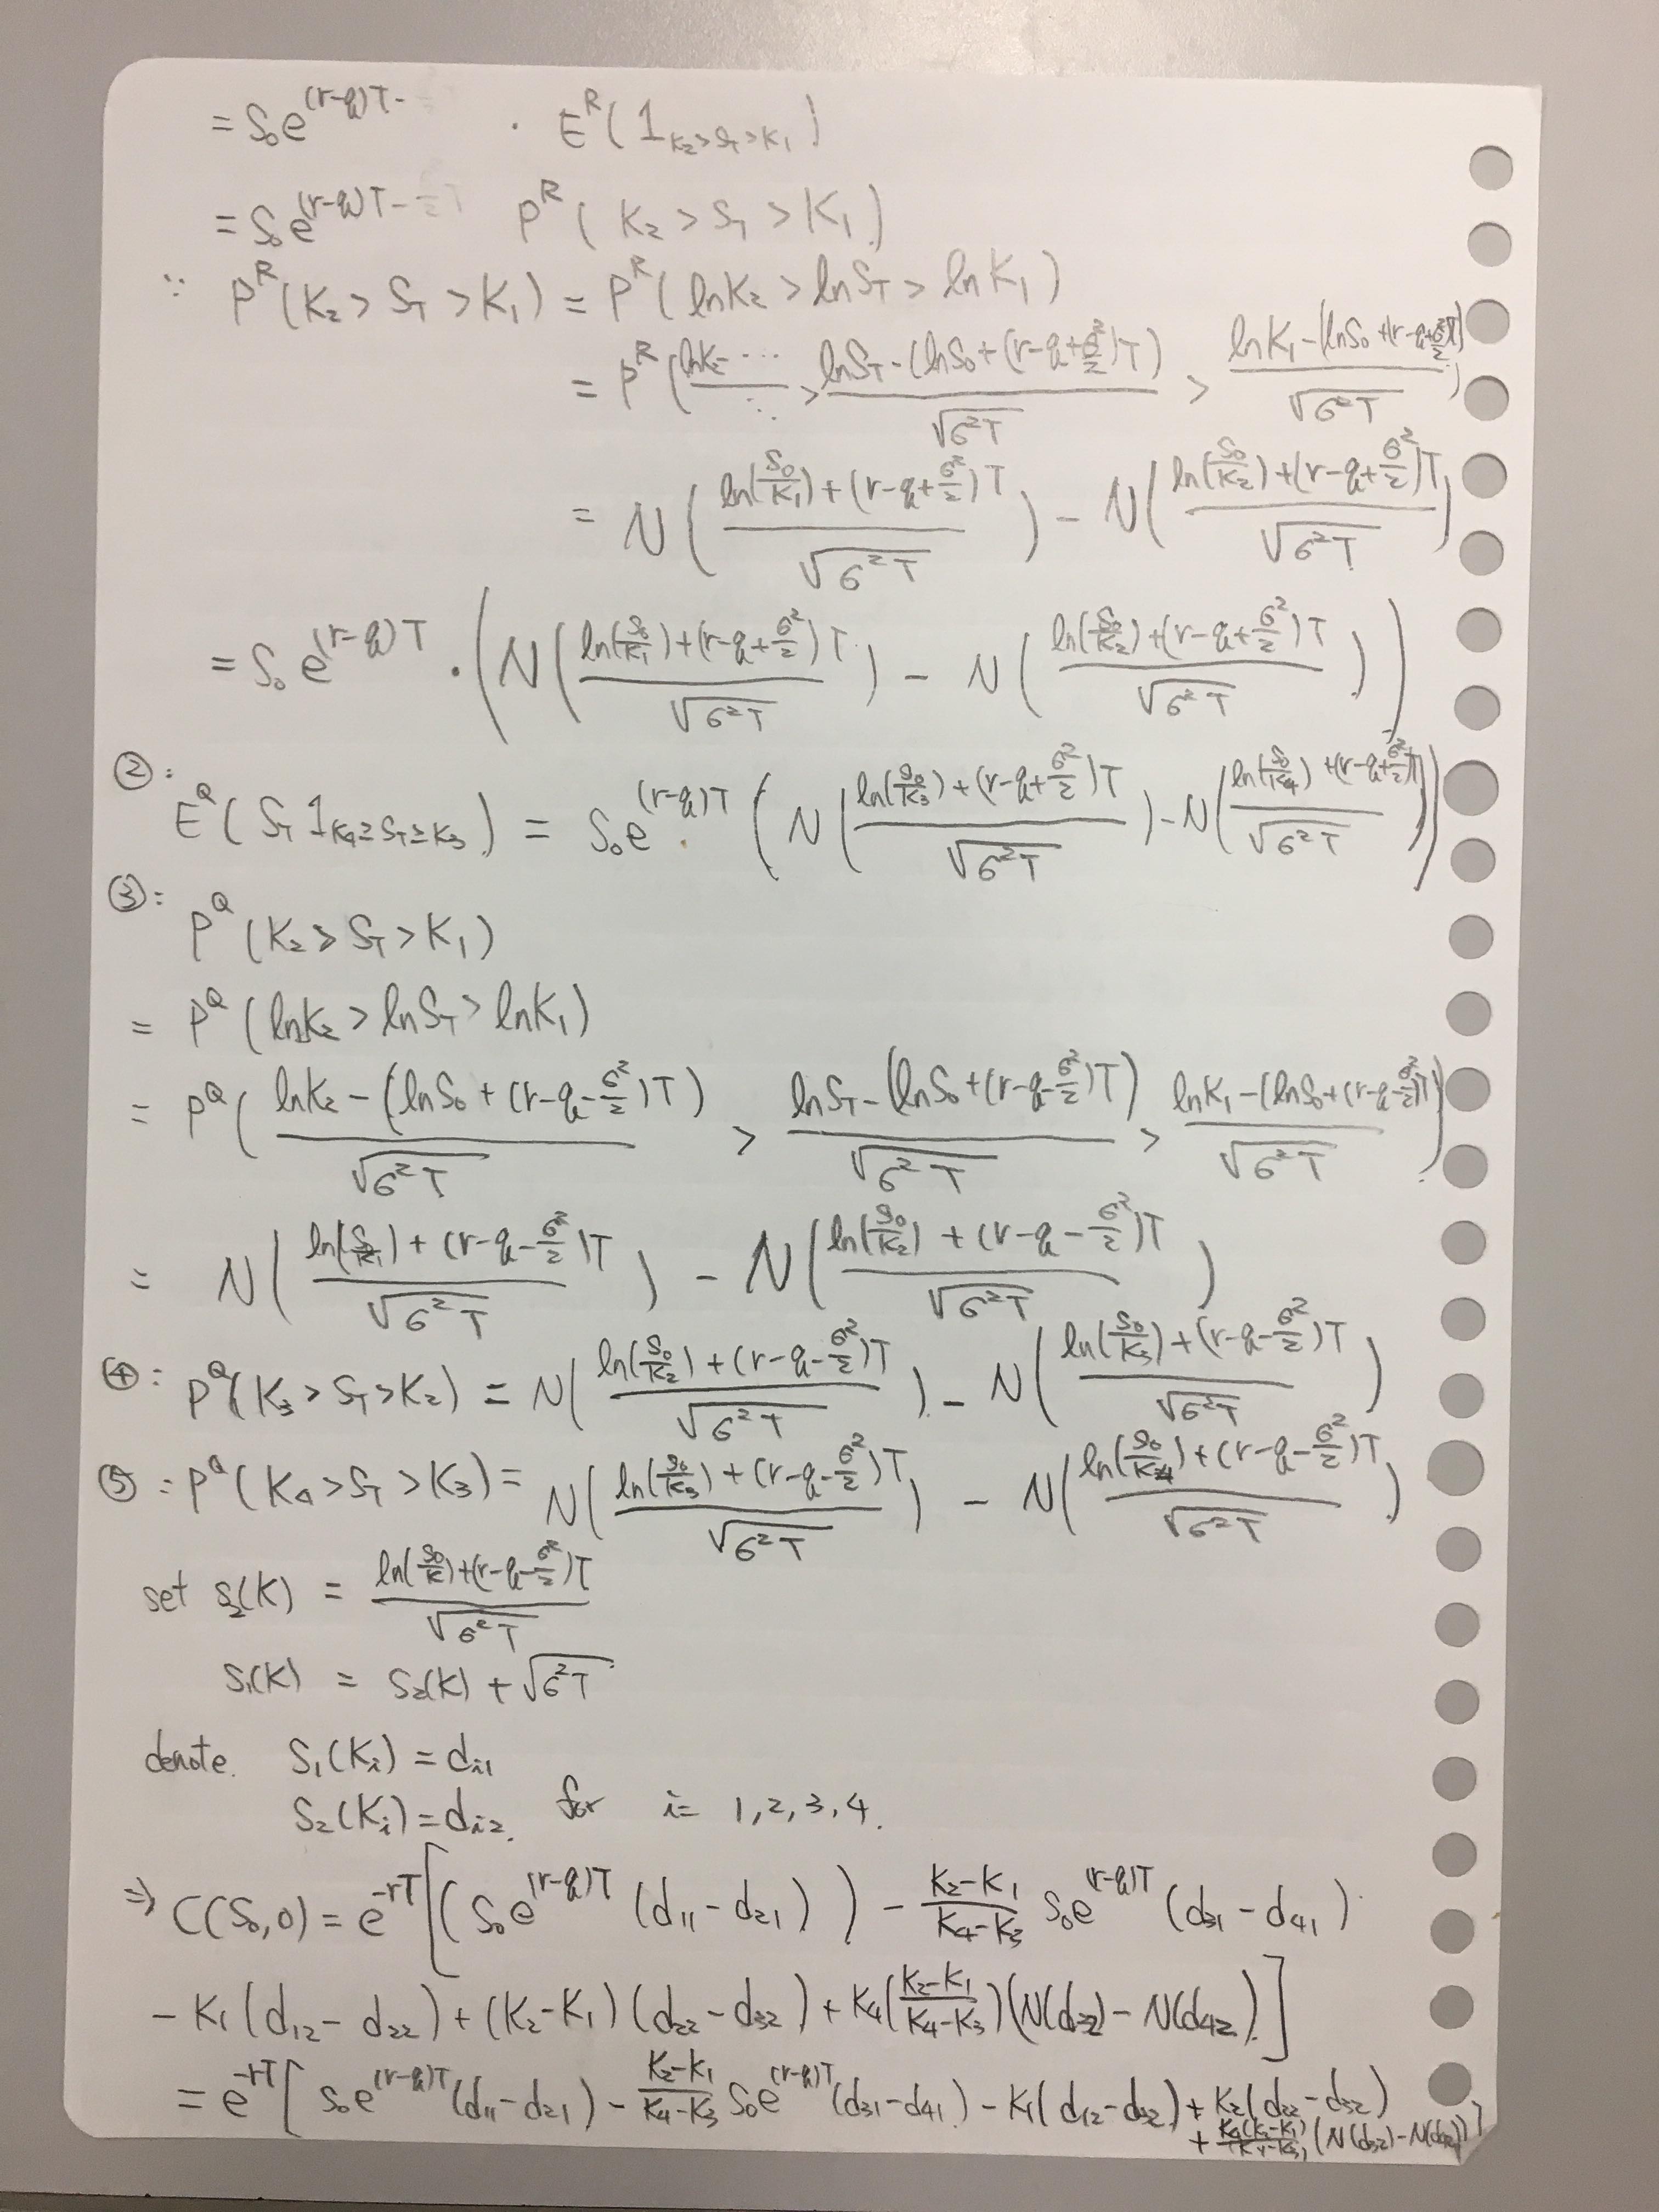 = S₀e^{(r-q)T-} · E^R(1_{K₂>S_T>K₁})
= S₀e^{(r-q)T-} P^R(K₂ > S_T > K₁)
∵ P^R(K₂ > S_T > K₁) = P^R(lnK₂ > lnS_T > lnK₁)
= P^R( (lnK₂ ⋯)/⋯ > (lnS_T-(lnS₀+(r-q+σ²/2)T))/√(σ²T) > (lnK₁-(lnS₀+(r-q+σ²/2)T))/√(σ²T) )
= N( (ln(S₀/K₁)+(r-q+σ²/2)T)/√(σ²T) ) - N( (ln(S₀/K₂)+(r-q+σ²/2)T)/√(σ²T) )
= S₀e^{(r-q)T} · ( N( (ln(S₀/K₁)+(r-q+σ²/2)T)/√(σ²T) ) - N( (ln(S₀/K₂)+(r-q+σ²/2)T)/√(σ²T) ) )
②: E^Q(S_T 1_{K₄≥S_T≥K₃}) = S₀e^{(r-q)T} · ( N( (ln(S₀/K₃)+(r-q+σ²/2)T)/√(σ²T) ) - N( (ln(S₀/K₄)+(r-q+σ²/2)T)/√(σ²T) ) )
③: P^Q(K₂ > S_T > K₁)
= P^Q(lnK₂ > lnS_T > lnK₁)
= P^Q( (lnK₂-(lnS₀+(r-q-σ²/2)T))/√(σ²T) > (lnS_T-(lnS₀+(r-q-σ²/2)T))/√(σ²T) > (lnK₁-(lnS₀+(r-q-σ²/2)T))/√(σ²T) )
= N( (ln(S₀/K₁)+(r-q-σ²/2)T)/√(σ²T) ) - N( (ln(S₀/K₂)+(r-q-σ²/2)T)/√(σ²T) )
④: P^Q(K₃ > S_T > K₂) = N( (ln(S₀/K₂)+(r-q-σ²/2)T)/√(σ²T) ) - N( (ln(S₀/K₃)+(r-q-σ²/2)T)/√(σ²T) )
⑤: P^Q(K₄ > S_T > K₃) = N( (ln(S₀/K₃)+(r-q-σ²/2)T)/√(σ²T) ) - N( (ln(S₀/K₄)+(r-q-σ²/2)T)/√(σ²T) )
set S₂(K) = (ln(S₀/K)+(r-q-σ²/2)T)/√(σ²T)
S₁(K) = S₂(K) + √(σ²T)
denote. S₁(Kᵢ) = dᵢ₁
S₂(Kᵢ) = dᵢ₂. for i= 1,2,3,4.
⇒ C(S₀,0) = e^{-rT}[(S₀e^{(r-q)T}(d₁₁-d₂₁)) - (K₂-K₁)/(K₄-K₃) S₀e^{(r-q)T}(d₃₁-d₄₁)
- K₁(d₁₂-d₂₂) + (K₂-K₁)(d₂₂-d₃₂) + K₄((K₂-K₁)/(K₄-K₃))(N(d₃₂)-N(d₄₂))]
= e^{-rT}[S₀e^{(r-q)T}(d₁₁-d₂₁) - (K₂-K₁)/(K₄-K₃) S₀e^{(r-q)T}(d₃₁-d₄₁) - K₁(d₁₂-d₃₂) + K₂(d₂₂-d₃₂)
+ K₄(K₂-K₁)/(K₄-K₃) (N(d₃₂)-N(d₄₂))]